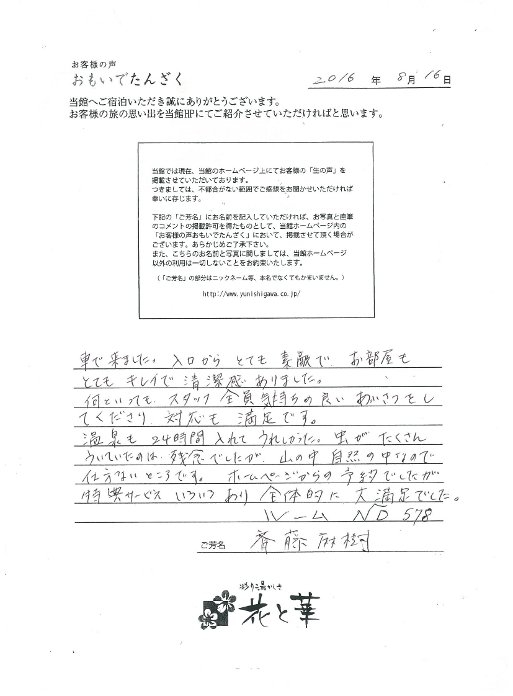 お客様の声
おもいでたんざく
2016 年 8月 16日
当館へご宿泊いただき誠にありがとうございます。
お客様の旅の思い出を当館HPにてご紹介させていただければと思います。
当館では現在、当館のホームページ上にてお客様の「生の声」を
掲載させていただいております。
つきましては、不都合がない範囲でご感想をお聞かせいただければ
幸いに存じます。
下記の「ご芳名」にお名前を記入していただければ、お写真と直筆
のコメントの掲載許可を得たものとして、当館ホームページ内の
「お客様の声おもいでたんざく」において、掲載させて頂く場合が
ございます。あらかじめご了承下さい。
また、こちらのお名前と写真に関しましては、当館ホームページ
以外の利用は一切しないことをお約束いたします。
（「ご芳名」の部分はニックネーム等、本名でなくてもかまいません。）
http://www.yunishigawa.co.jp/
車で来ました。入口から とても 素敵で お部屋も
とても キレイで 清潔感 ありました。
何といっても、スタッフ 全員 気持ちの良い あいさつをし
てくださり、対応も 満足です。
温泉も 24時間 入れて うれしかった。虫が たくさん
ういていたのは、残念でしたが、山の中 自然の中なので
仕方ないところです。 ホームページからの 予約でしたが
特典サービス いろいろ あり 全体的に 大満足でした。
ルーム NO 578
ご芳名 斉藤麻樹
花と華